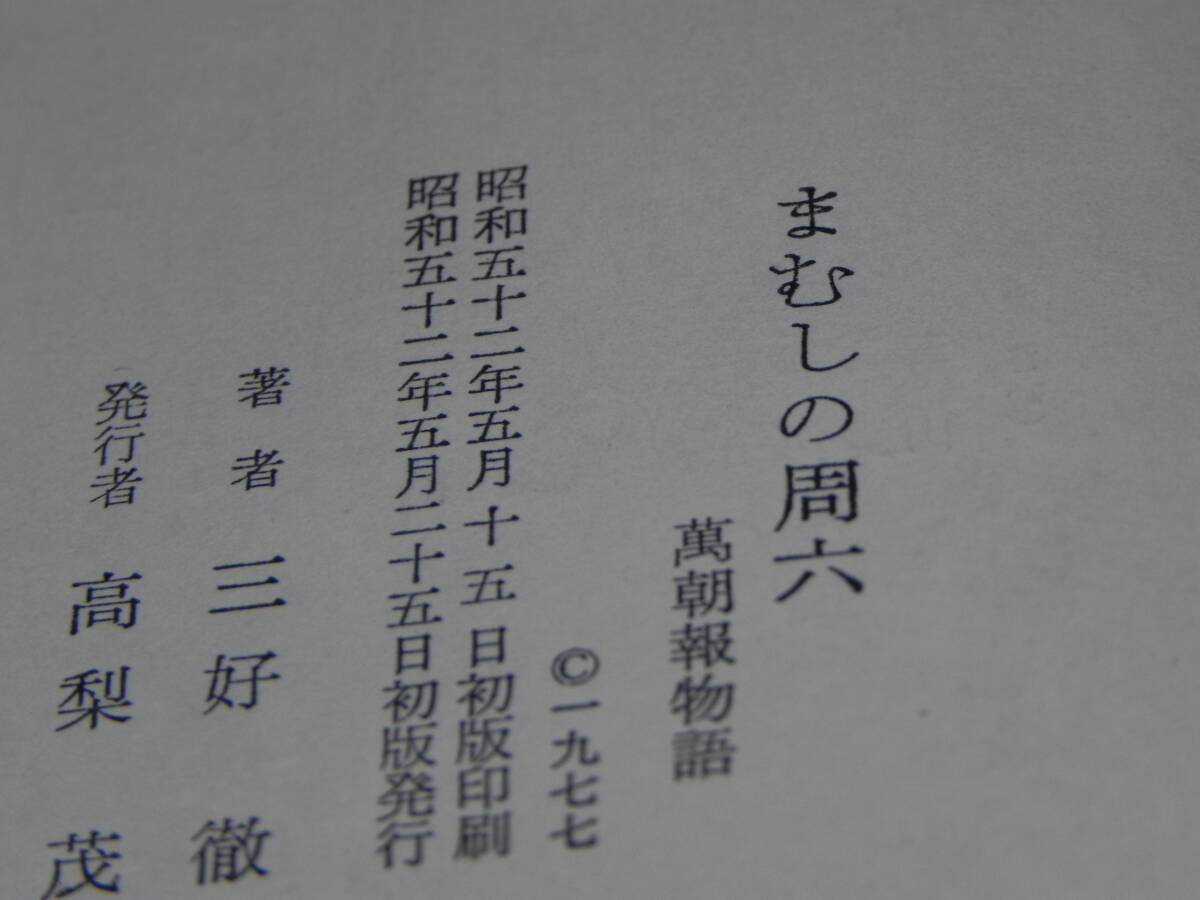 まむしの周六
萬朝報物語
©一九七七
昭和五十二年五月十五日初版印刷
昭和五十二年五月二十五日初版発行
著者 三好徹
発行者 高梨茂